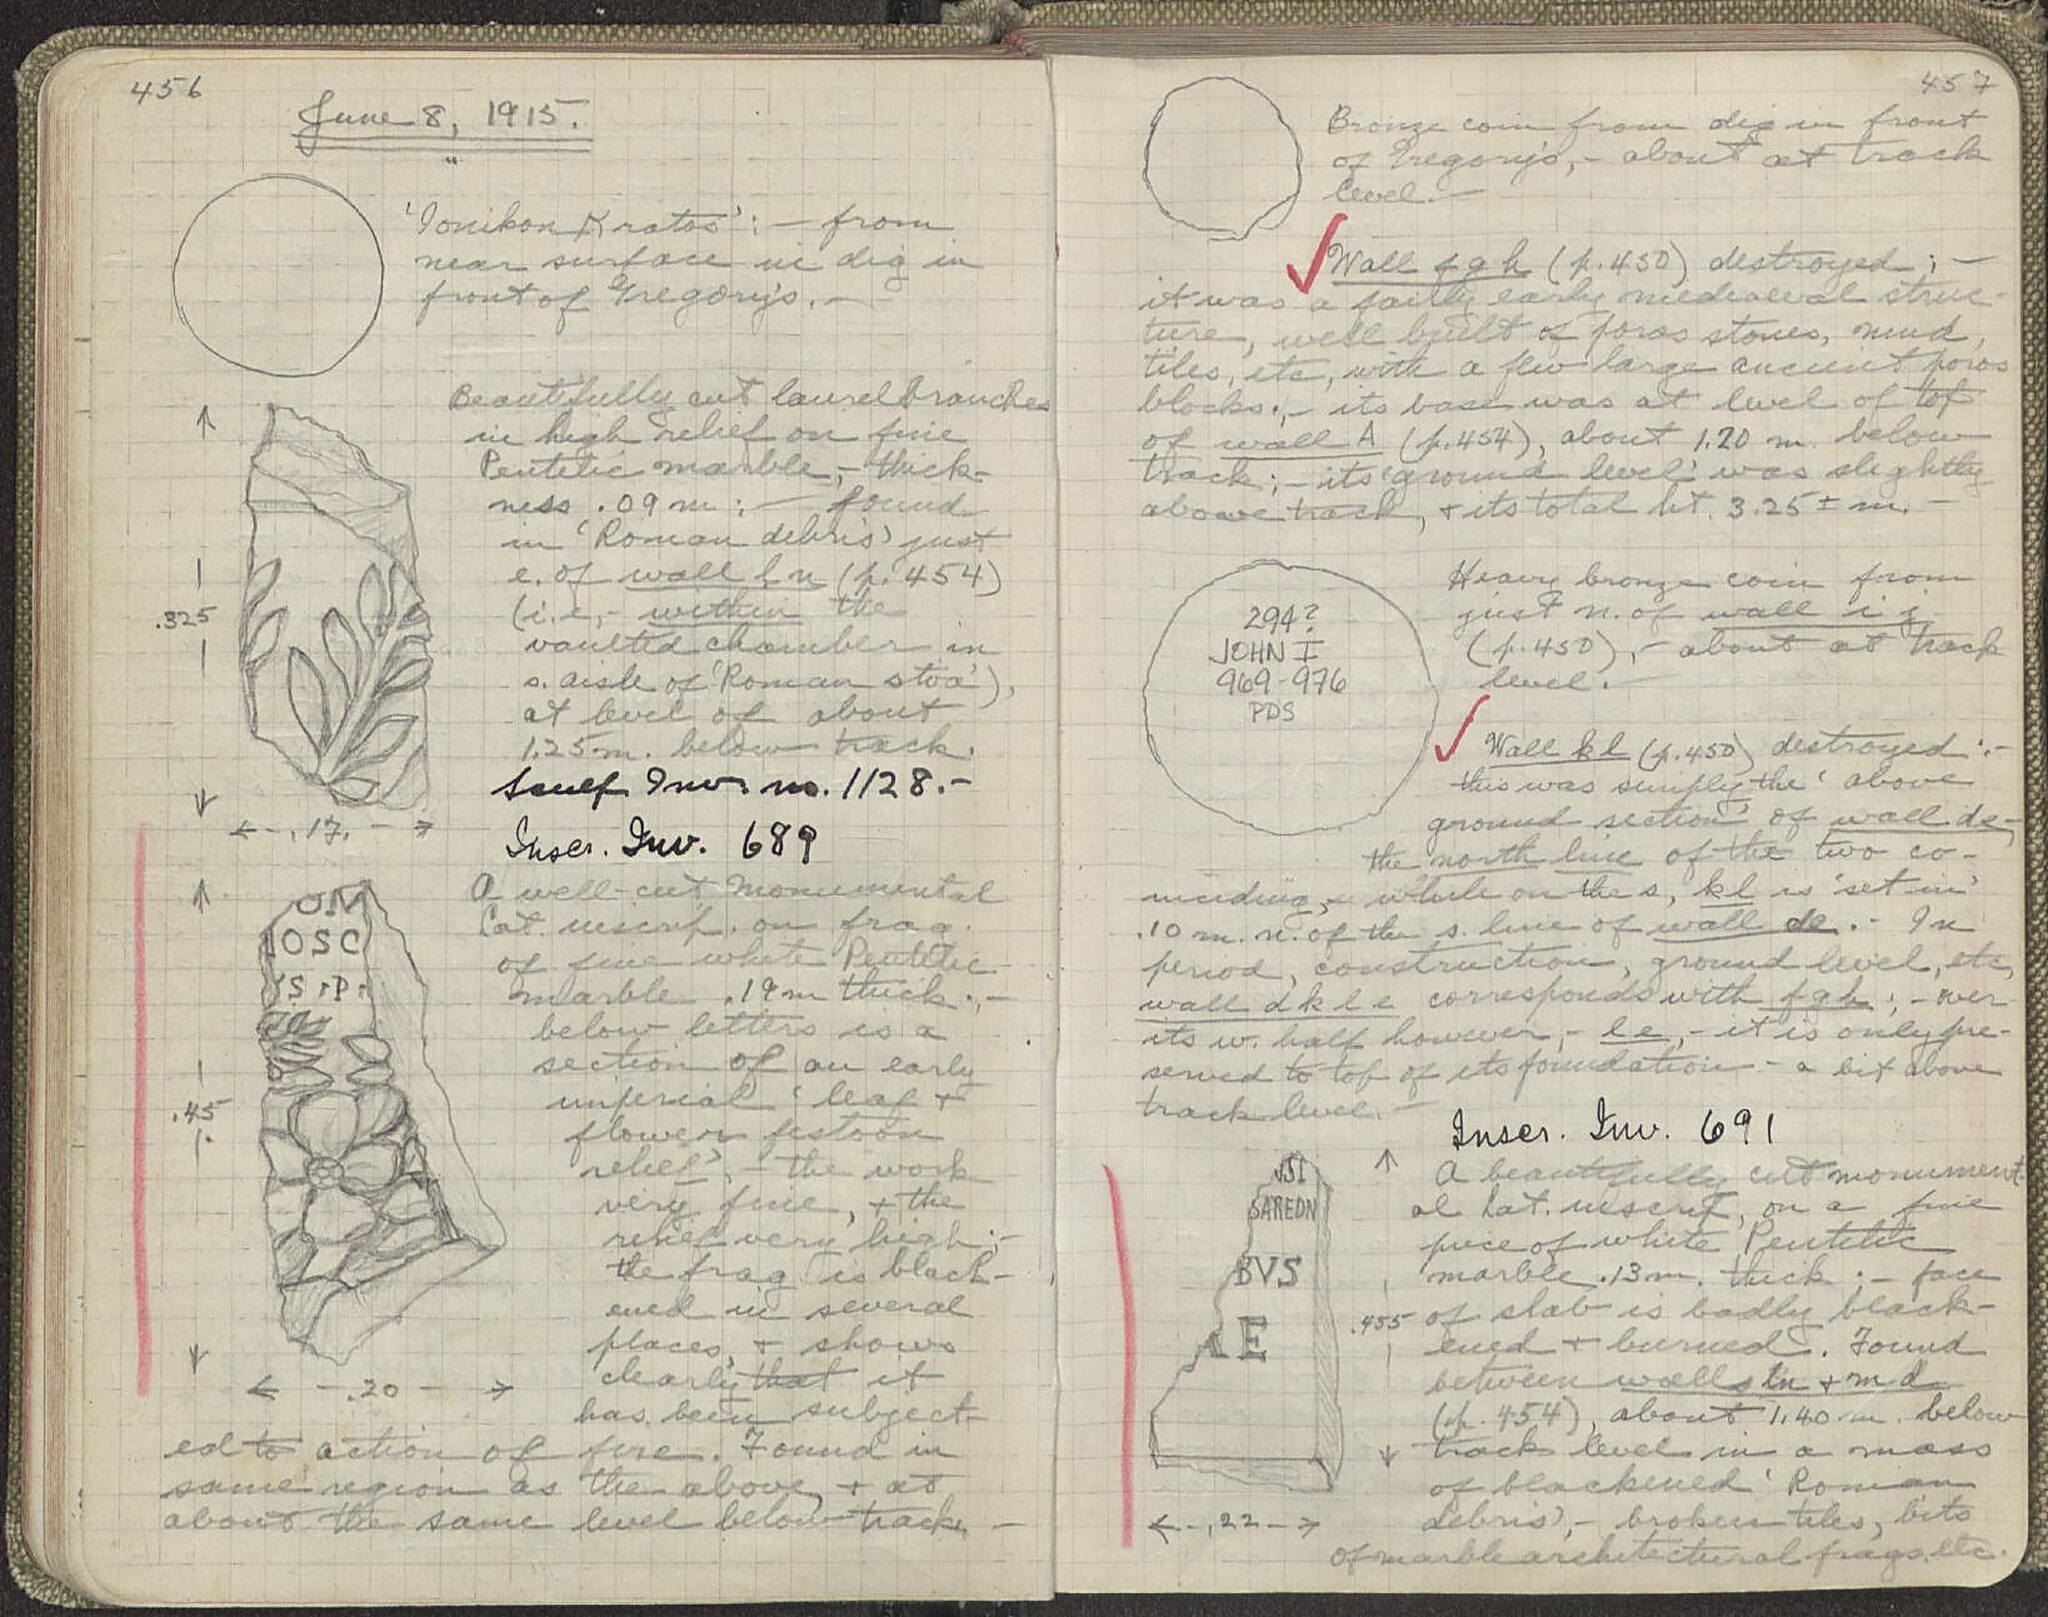 456
June 8, 1915.
"
'Ionikon Kratos':— from
near surface in dig in
front of Gregory's.—
Beautifully cut laurel branches
in high relief on fine
Pentelic marble,- thick-
ness .09 m:— found
in 'Roman debris' just
e. of wall ln (p. 454)
(i.e,- within the
vaulted chamber in
s. aisle of 'Roman stoa'),
at level of about
1.25 m. below track.
.325
.17.
Sculp. Inv. no. 1128.-
Inscr. Inv. 689
A well-cut monumental
Lat. inscrip. on frag.
of fine white Pentelic
marble .19m thick:,-
below letters is a
section of an early
imperial 'leaf +
flower festoon
relief',- the work
very fine, + the
relief very high:-
the frag is black-
ened in several
places, + shows
clearly that it
has been subject-
ed to action of fire. Found in
same region as the above, + at
about the same level below track. —
OM
IOSC
S P
.45
.20
457
Bronze coin from dig in front
of Gregory's,- about at track
level.—
Wall fgh (p.450) destroyed;—
it was a fairly early mediaeval struc-
ture, well built of poros stones, mud,
tiles, etc, with a few large ancient poros
blocks:,- its base was at level of top
of wall A (p.454), about 1.20 m. below
track;- its 'ground level' was slightly
above track, + its total ht. 3.25 ± m.—
294?
JOHN I
969-976
PDS
Heavy bronze coin from
just n. of wall ij
(p.450),- about at track
level.—
Wall kl (p.450) destroyed:-
this was simply the 'above
ground section' of wall de,
the north line of the two co-
inciding,- while on the s, kl is 'set in'
.10 m. n. of the s. line of wall de.- In
period, construction, ground level, etc,
wall dkle corresponds with fgh;- over
its w. half however,- le,- it is only pre-
served to top of its foundation - a bit above
track level.—
Inscr. Inv. 691
A beautifully cut monument-
al Lat. inscrip, on a fine
piece of white Pentelic
marble .13m. thick:- face
of slab is badly black-
ened + burned. Found
between walls ln + md
(p. 454), about 1.40 m. below
track level in a mass
of blackened 'Roman
debris',- broken tiles, bits
of marble architectural frags, etc.
VSI
SAREDN
BVS
AE
.455
.22